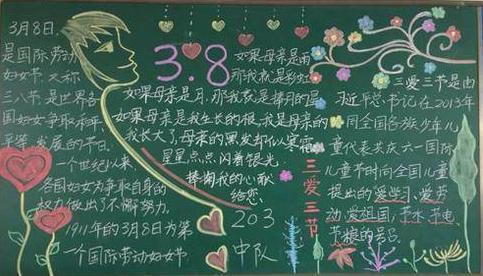 3月8日,
是国际劳动
妇女节,又称
三八节,是世界各
国妇女争取和平,
平等,发展的节日。
一个世纪以来,
各国妇女为争取自身的
权力做出了不懈努力。
1911年的3月8日为第
一个国际劳动妇女节
3.8
如果母亲是雨
那我就是彩虹
如果母亲是月,那我就是捧月的星
如果母亲是我生长的根,我是母亲的
我长大了,母亲的黑发却似寒霜
星星点点,闪着银光,
捧掬我的心献
给您
203
中队
三爱三节
三爱三节是由
习近平总书记在2013年
同全国各族少年儿
童代表共庆六一国际
儿童节时向全国儿童
提出的爱学习、爱劳
动、爱祖国,节水、节电、
节粮的号召